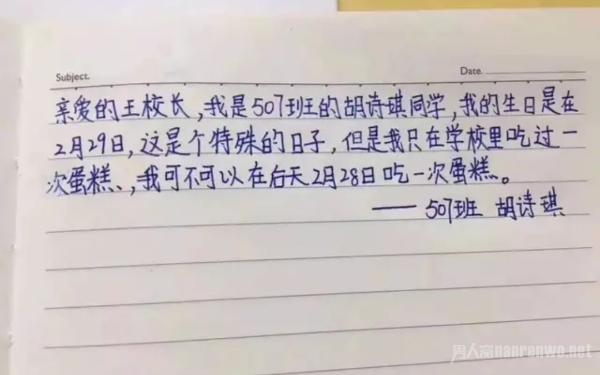 Subject.
Date.
亲爱的王校长，我是507班的胡诗琪同学，我的生日是在
2月29日，这是个特殊的日子，但是我只在学校里吃过一
次蛋糕、，我可不可以在后天2月28日吃一次蛋糕。
——507班 胡诗琪
男人窝nanrenwo.net